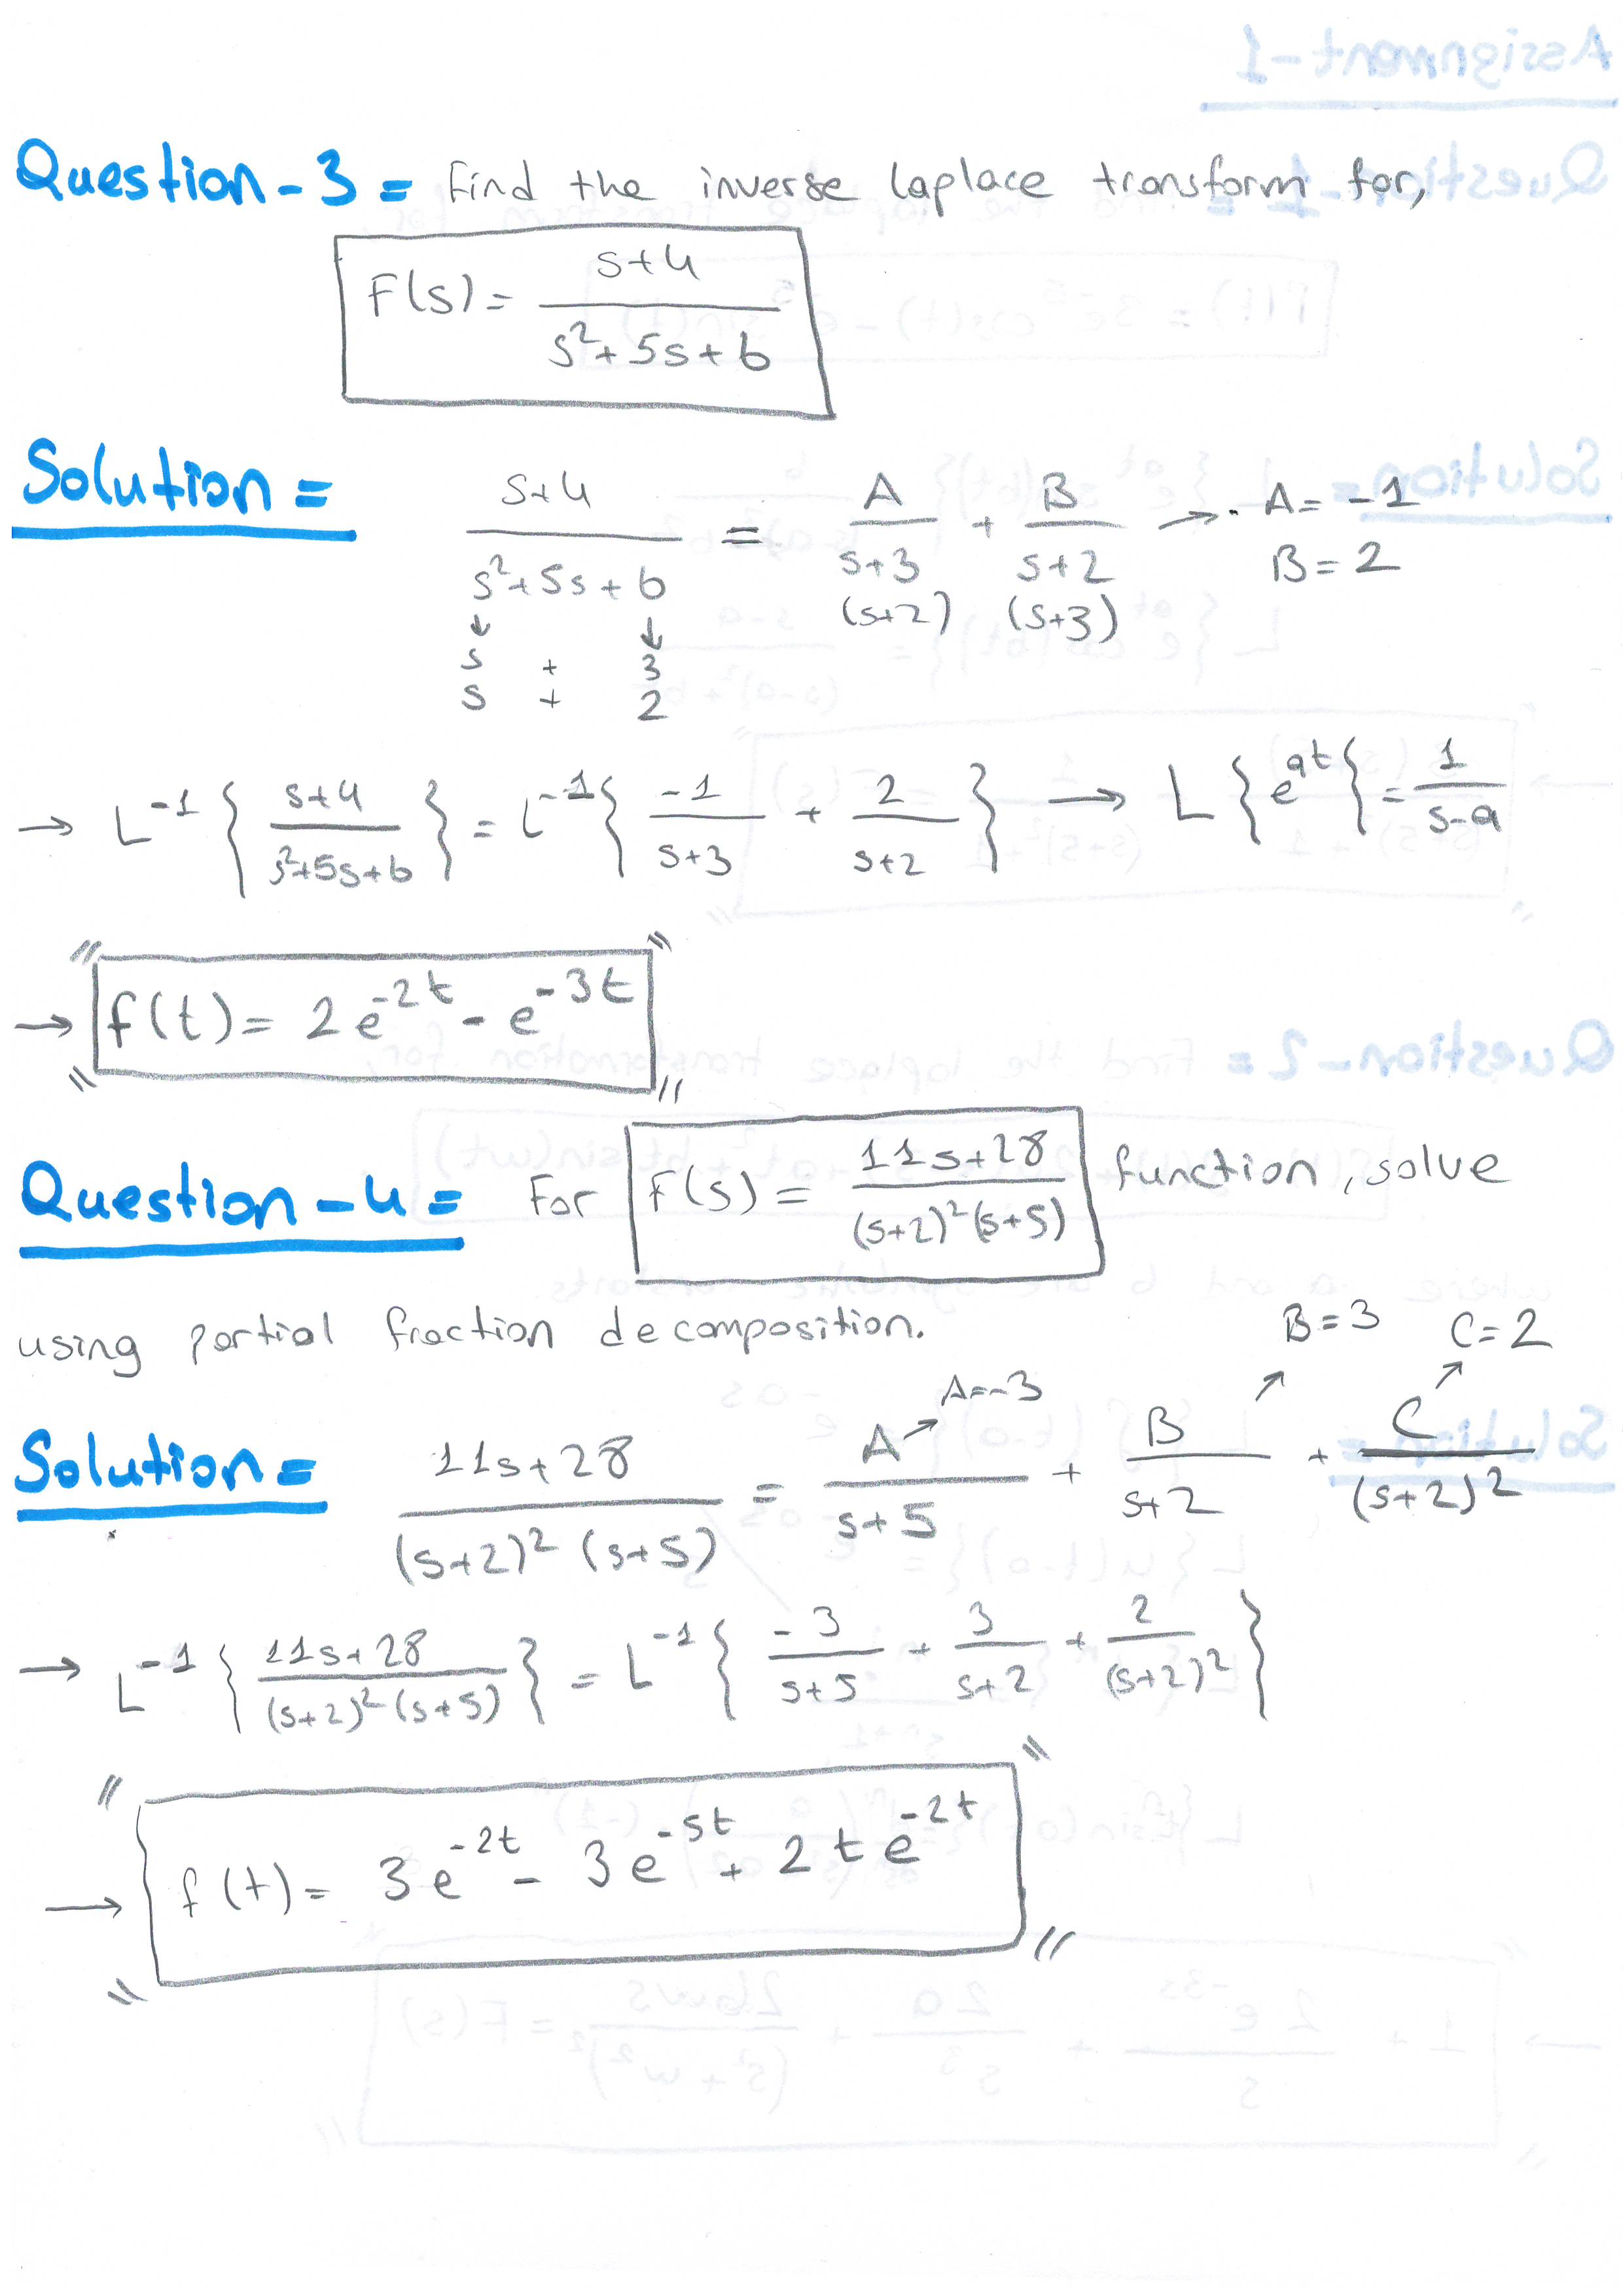 Question-3 = Find the inverse Laplace transform for,
F(s) = s+4 / s²+5s+6
Solution = s+4 / s²+5s+6 = A / s+3 + B / s+2 → A = -1
(s+2) (s+3) B = 2
↓ ↓
s + 3
s + 2
→ L⁻¹ { s+4 / s²+5s+6 } = L⁻¹ { -1 / s+3 + 2 / s+2 } → L { e^at } = 1 / s-a
→ f(t) = 2e^-2t - e^-3t
Question-4 = For F(s) = 11s+28 / (s+2)²(s+5) function, solve
using partial fraction decomposition.
A=-3 B=3 C=2
Solution = 11s+28 / (s+2)² (s+5) = A / s+5 + B / s+2 + C / (s+2)²
→ L⁻¹ { 11s+28 / (s+2)²(s+5) } = L⁻¹ { -3 / s+5 + 3 / s+2 + 2 / (s+2)² }
→ f(t) = 3e^-2t - 3e^-5t + 2te^-2t